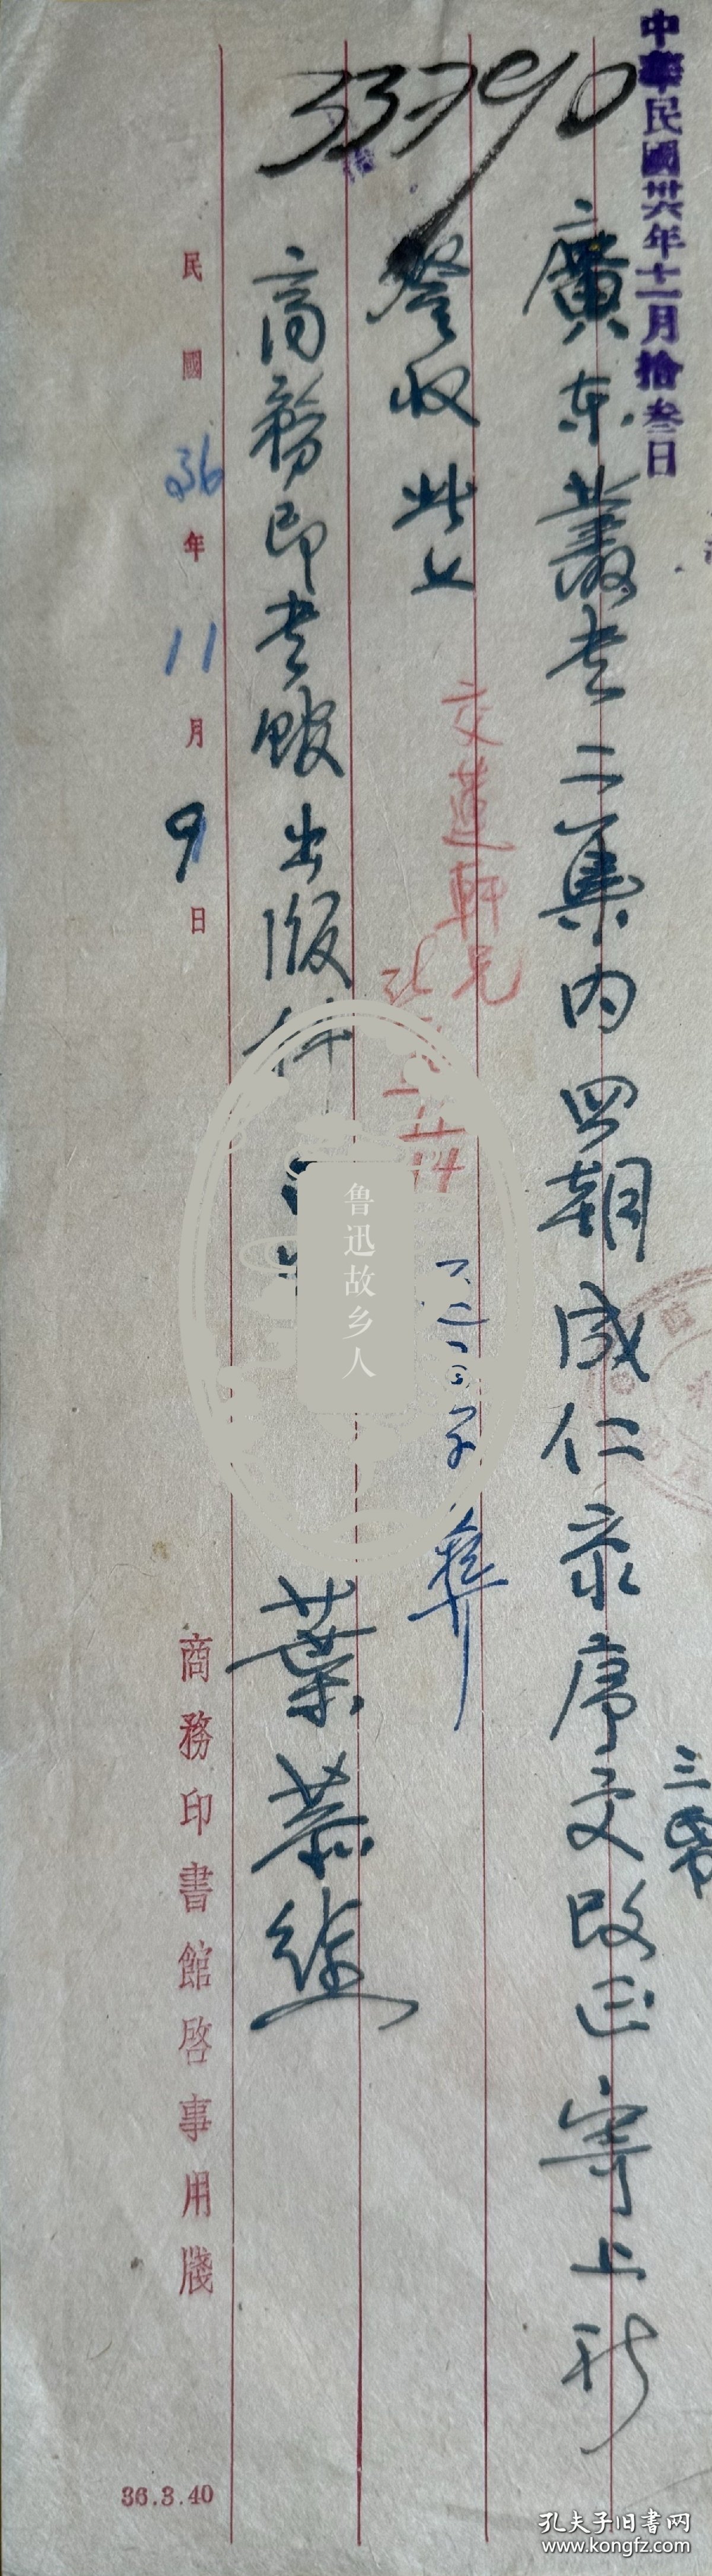 中華民國卅六年十一月拾叁日
33790
廣東叢書二集内四朝成仁录序文改正寄上祈
三条
詧收此上
交蓮軒兄
11/14
商務印書館出版科
葉恭綽
民國36年11月9日
商務印書館啓事用牋
36.3.40
鲁迅故乡人
孔夫子旧书网
www.kongfz.com